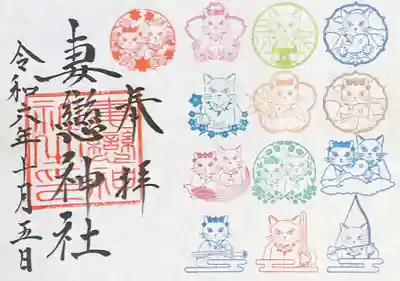 奉拝
妻戀神社
令和六年十月五日